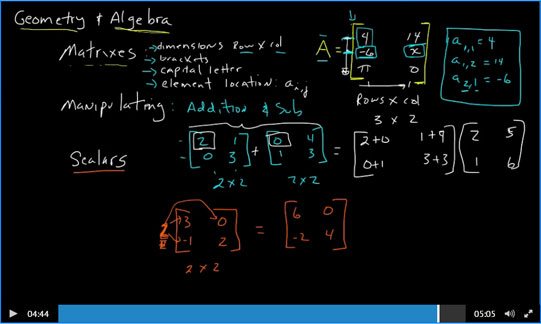 Geometry & Algebra
Matrixes :→dimensions Row x col
:→brackets
:→capital letter
:→element location: a i,j
A = [ 4 14
-6 x
π 0 ]
Rows x col
3 x 2
a 1,1 = 4
a 1,2 = 14
a 2,1 = -6
Manipulating: Addition & Sub
[ 2 1
0 3 ] + [ 0 4
1 3 ] = [ 2+0 1+4
0+1 3+3 ] ( 2 5
1 6 ]
2 x 2 2 x 2
Scalars
2 [ 3 0
-1 2 ] = [ 6 0
-2 4 ]
2 x 2
04:44 05:05